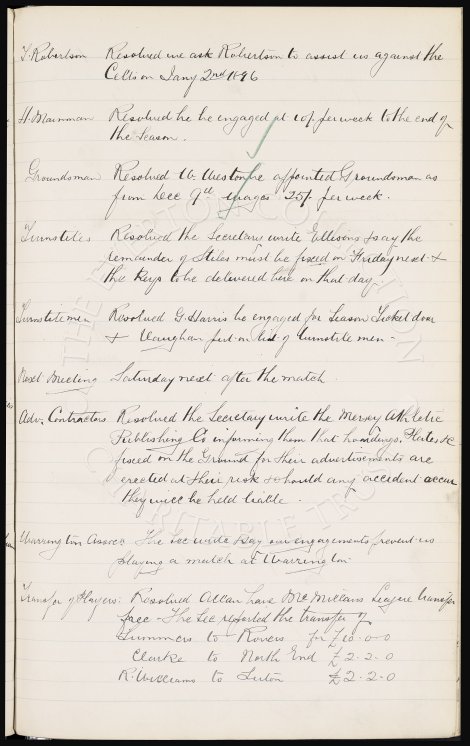 T. Robertson Resolved we ask Robertson to assist us against the
Celts on Jany 2nd 1896
H. Mainman Resolved he be engaged at 10/- per week to the end of
the Season.
Groundsman Resolved W. Weston be appointed Groundsman as
from Dec 9th wages 25/- per week.
Turnstiles Resolved the Secretary write Ellisons & say the
remainder of Stiles must be fixed on Friday next &
the Keys to be delivered here on that day
Turnstile men Resolved G. Harris be engaged for Season Ticket door
& Vaughan put on list of turnstile men -
Next Meeting Saturday next after the match.
Adv. Contractors Resolved the Secretary write the Mersey Athletic
Publishing Co informing them that hoardings, Plates &c
fixed on the Ground for their advertisements are
erected at their risk & should any accident occur
they will be held liable.
Warrington The Sec write & say our engagements prevent us
playing a match at Warrington
Transfer of Players: Resolved Allan have McMillans League transfer
free - The Sec reported the transfer of
Summers to Rovers for £10-0-0
Clarke to North End £2-2-0
R. Williams to Luton £2-2-0
THE EVERTON COLLECTION
CHARITABLE TRUST